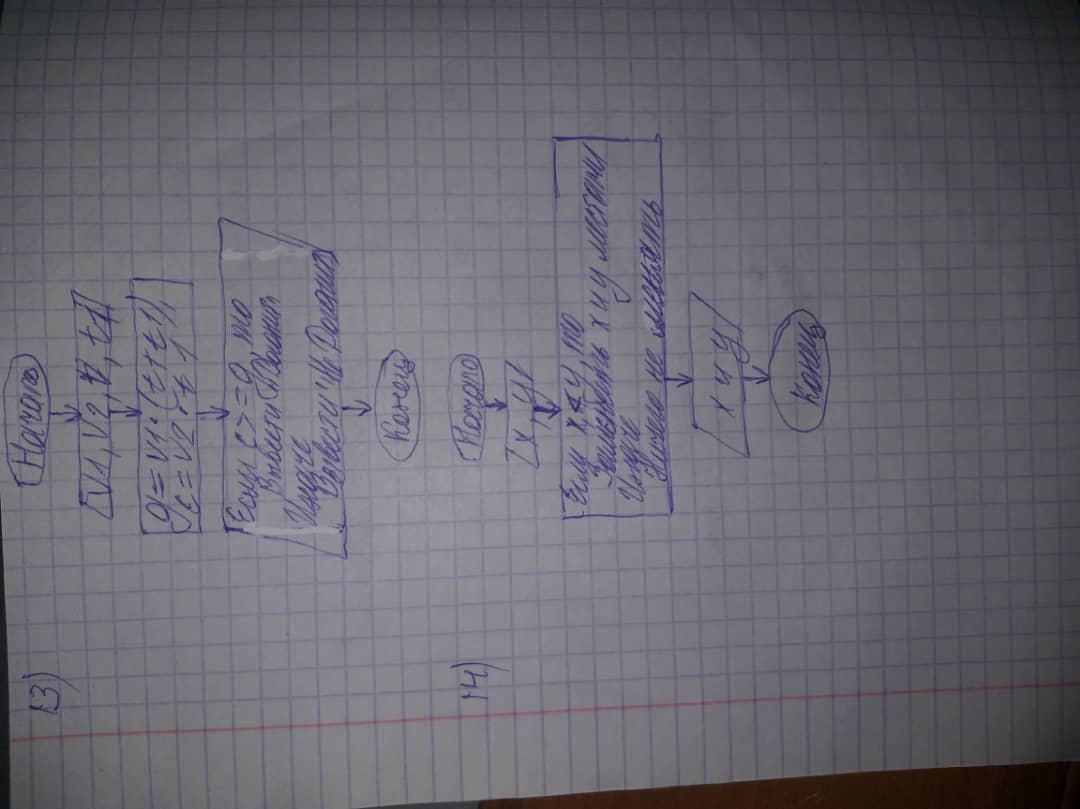 13)
Начало
V1, V2, t, t1
a = V1 · (t + t1)
c = V2 · t1
Если c >= a, то
Вывести Догонит
Иначе
Вывести Не Догонит
Конец
14)
Начало
x, y
Если x < y, то
Заменить x и y местами
Иначе
Ничего не менять
x и y
Конец